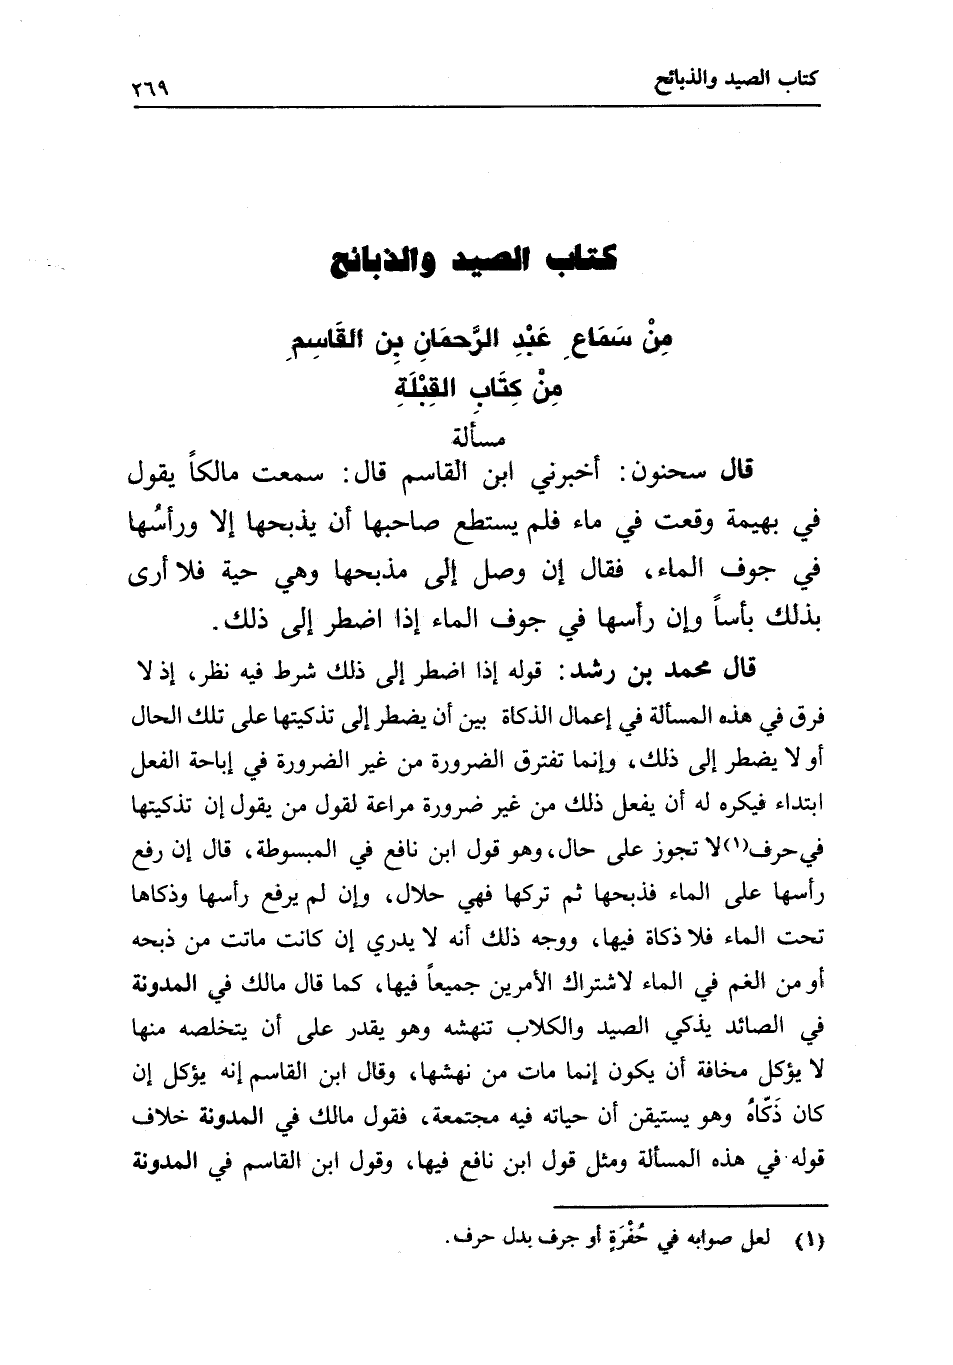 كتاب الصيد والذبائح
٢٦٩
كتاب الصيد والذبائح
مِنْ سَمَاعِ عَبْدِ الرَّحمَانِ بِن القَاسِمِ
مِنْ كِتَابِ القِبْلَةِ
مسألة
قال سحنون: أخبرني ابن القاسم قال: سمعت مالكاً يقول
في بهيمة وقعت في ماء فلم يستطع صاحبها أن يذبحها إلا ورأسُها
في جوف الماء، فقال إن وصل إلى مذبحها وهي حية فلا أرى
بذلك بأساً وإن رأسها في جوف الماء إذا اضطر إلى ذلك.
قال محمد بن رشد: قوله إذا اضطر إلى ذلك شرط فيه نظر، إذ لا
فرق في هذه المسألة في إعمال الذكاة بين أن يضطر إلى تذكيتها على تلك الحال
أو لا يضطر إلى ذلك، وإنما تفترق الضرورة من غير الضرورة في إباحة الفعل
ابتداء فيكره له أن يفعل ذلك من غير ضرورة مراعة لقول من يقول إن تذكيتها
في حرف(١) لا تجوز على حال، وهو قول ابن نافع في المبسوطة، قال إن رفع
رأسها على الماء فذبحها ثم تركها فهي حلال، وإن لم يرفع رأسها وذكاها
تحت الماء فلا ذكاة فيها، ووجه ذلك أنه لا يدري إن كانت ماتت من ذبحه
أو من الغم في الماء لاشتراك الأمرين جميعاً فيها، كما قال مالك في المدونة
في الصائد يذكي الصيد والكلاب تنهشه وهو يقدر على أن يتخلصه منها
لا يؤكل مخافة أن يكون إنما مات من نهشها، وقال ابن القاسم إنه يؤكل إن
كان ذَكّاهُ وهو يستيقن أن حياته فيه مجتمعة، فقول مالك في المدونة خلاف
قوله في هذه المسألة ومثل قول ابن نافع فيها، وقول ابن القاسم في المدونة
(١) لعل صوابه في حُفْرَةٍ أو جرف بدل حرف.